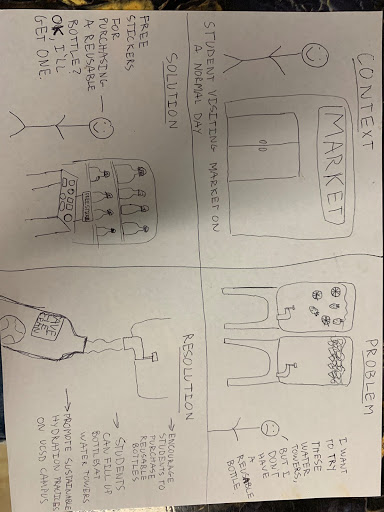 CONTEXT
MARKET
STUDENT VISITING MARKET ON
A NORMAL DAY
PROBLEM
I WANT
TO TRY
THESE
WATER
TOWERS,
BUT I
DON'T
HAVE
A
REUSABLE
BOTTLE
SOLUTION
FREE
STICKERS
FOR
PURCHASING
A REUSABLE
BOTTLE?
OK, I'LL
GET ONE.
RESOLUTION
→ ENCOURAGE
STUDENTS TO
PURCHASE
REUSABLE
BOTTLES
→ STUDENTS
CAN FILL UP
BOTTLE AT
WATER TOWERS
→ PROMOTE SUSTAINABLE
HYDRATION PRACTICES
ON UCSD CAMPUS